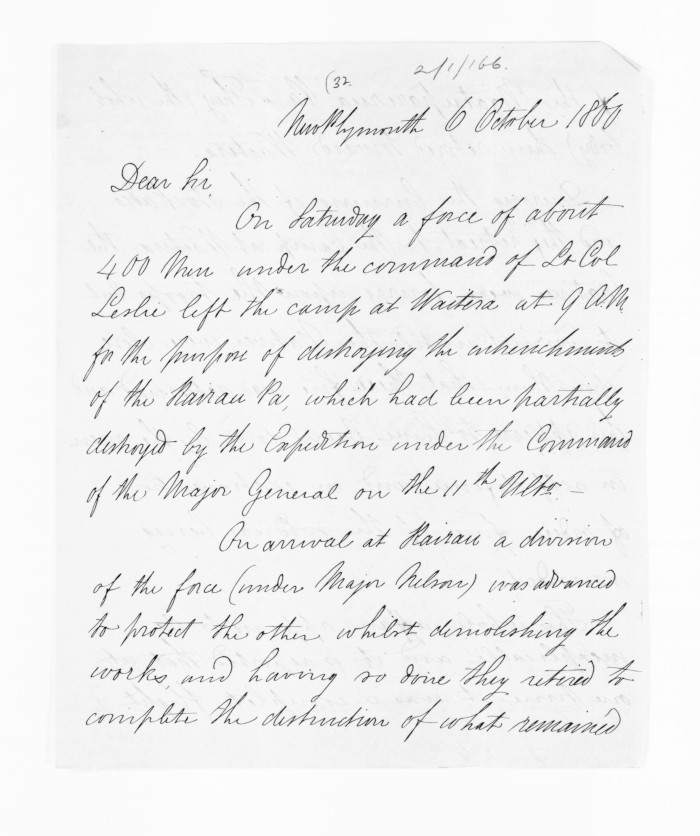 (32.
2/1/166.
New Plymouth 6 October 1860
Dear Sir
On Saturday a force of about
400 Men under the command of Lt Col
Leslie left the camp at Waitera at 9 A.M.
for the purpose of destroying the entrenchments
of the Kairau Pa, which had been partially
destroyed by the Expedition under the Command
of the Major General on the 11th Ulto. —
On arrival at Kairau a division
of the force (under Major Nelson) was advanced
to protect the other whilst demolishing the
works, and having so done they retired to
complete the destruction of what remained